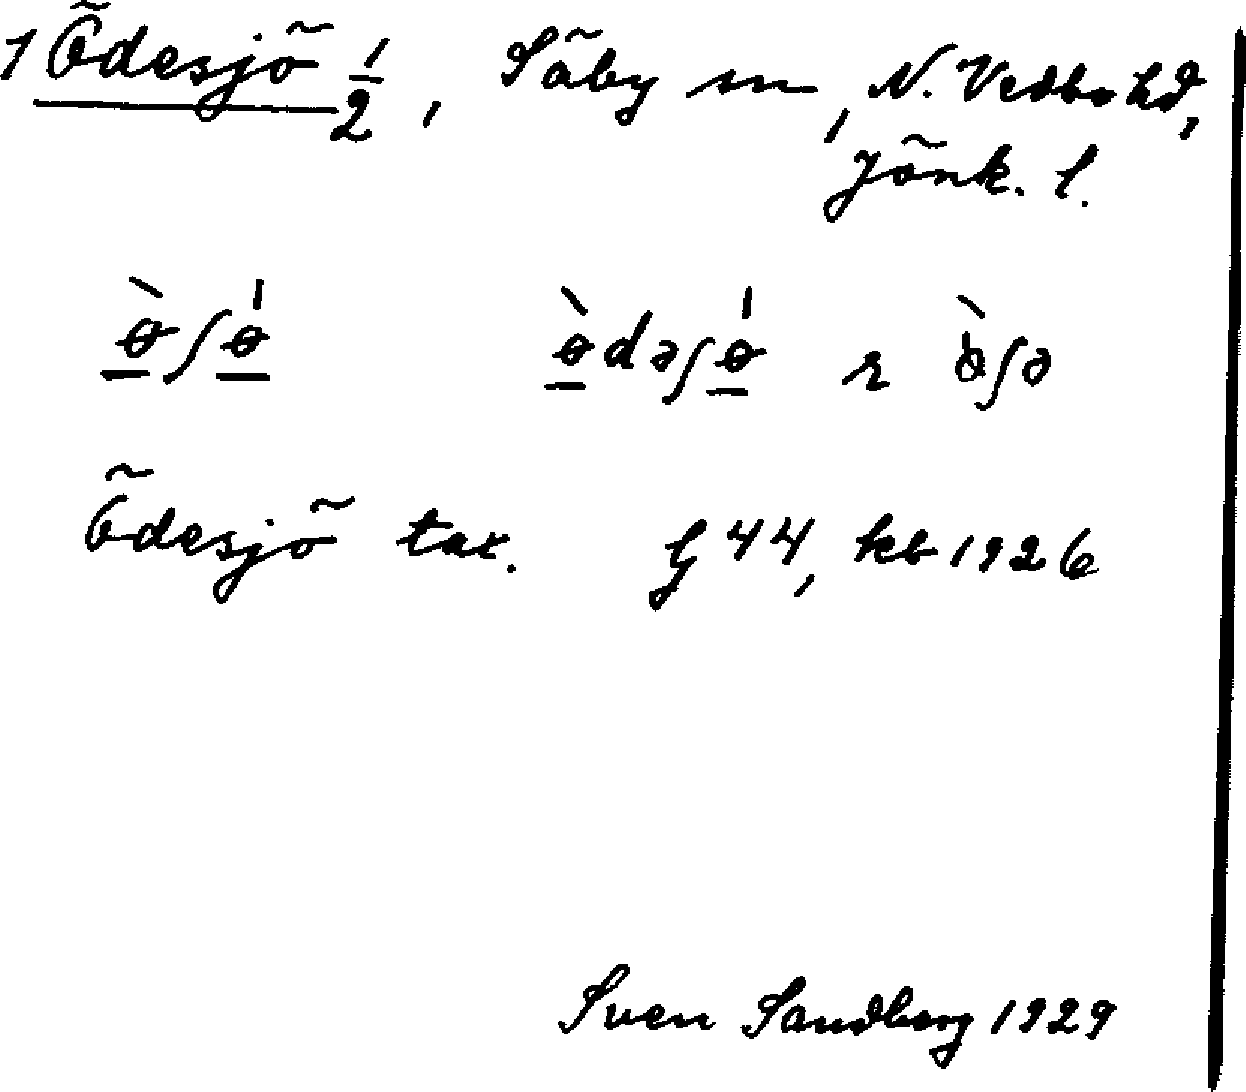 1 Ödesjö 1/2, Säby sn, N. Vedbo hd,
Jönk. l.
ɵ̲̀ʃɵ̲́ ɵ̲̀dəʃɵ̲́ r ɵ̀ʃə
Ödesjö tax. G 44, kb 1926
Sven Sandberg 1929